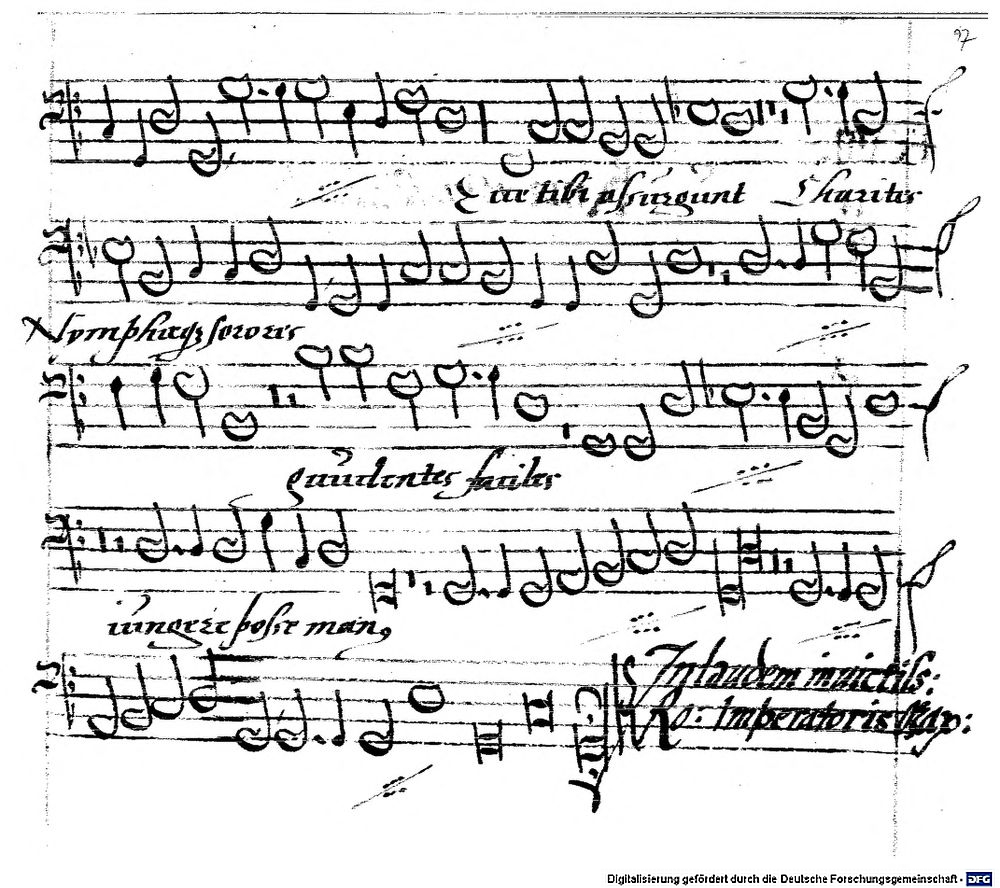 97
Quae tibi assurgunt Charites
Nymphaeq; sorores
gaudentes faciles
iungere posse man9
In laudem inuictiss:
Ro: Imperatoris
Digitalisierung gefördert durch die Deutsche Forschungsgemeinschaft - DFG